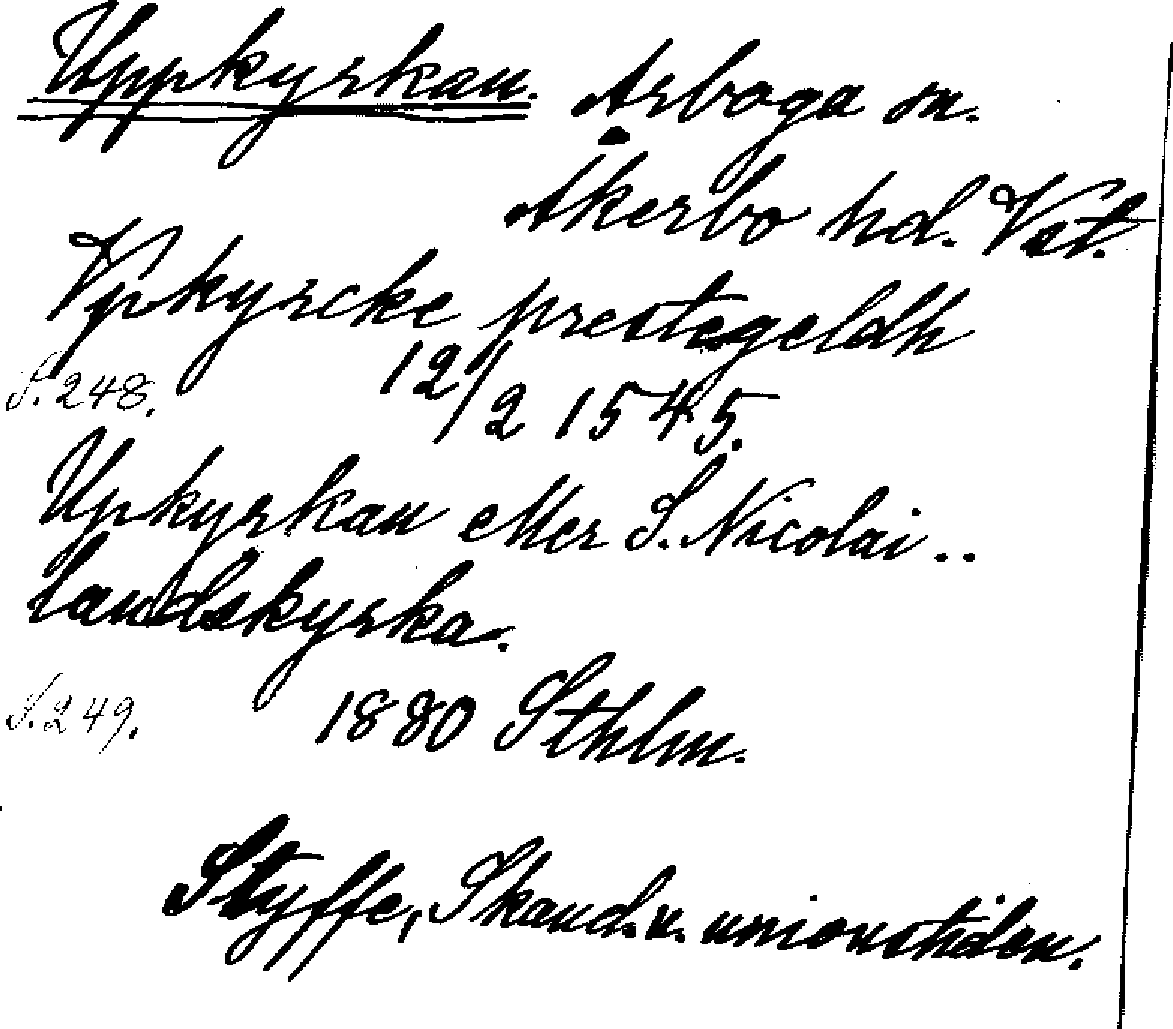 Uppkyrkan. Arboga sn.
Åkerbo hd. Vstl.
Vpkyrcke prestegeldh
S. 248. 12/2 1545.
Upkyrkan eller S. Nicolai..
landskyrka.
S. 249. 1880 Sthlm.
Styffe, Skand. u. unionstiden.